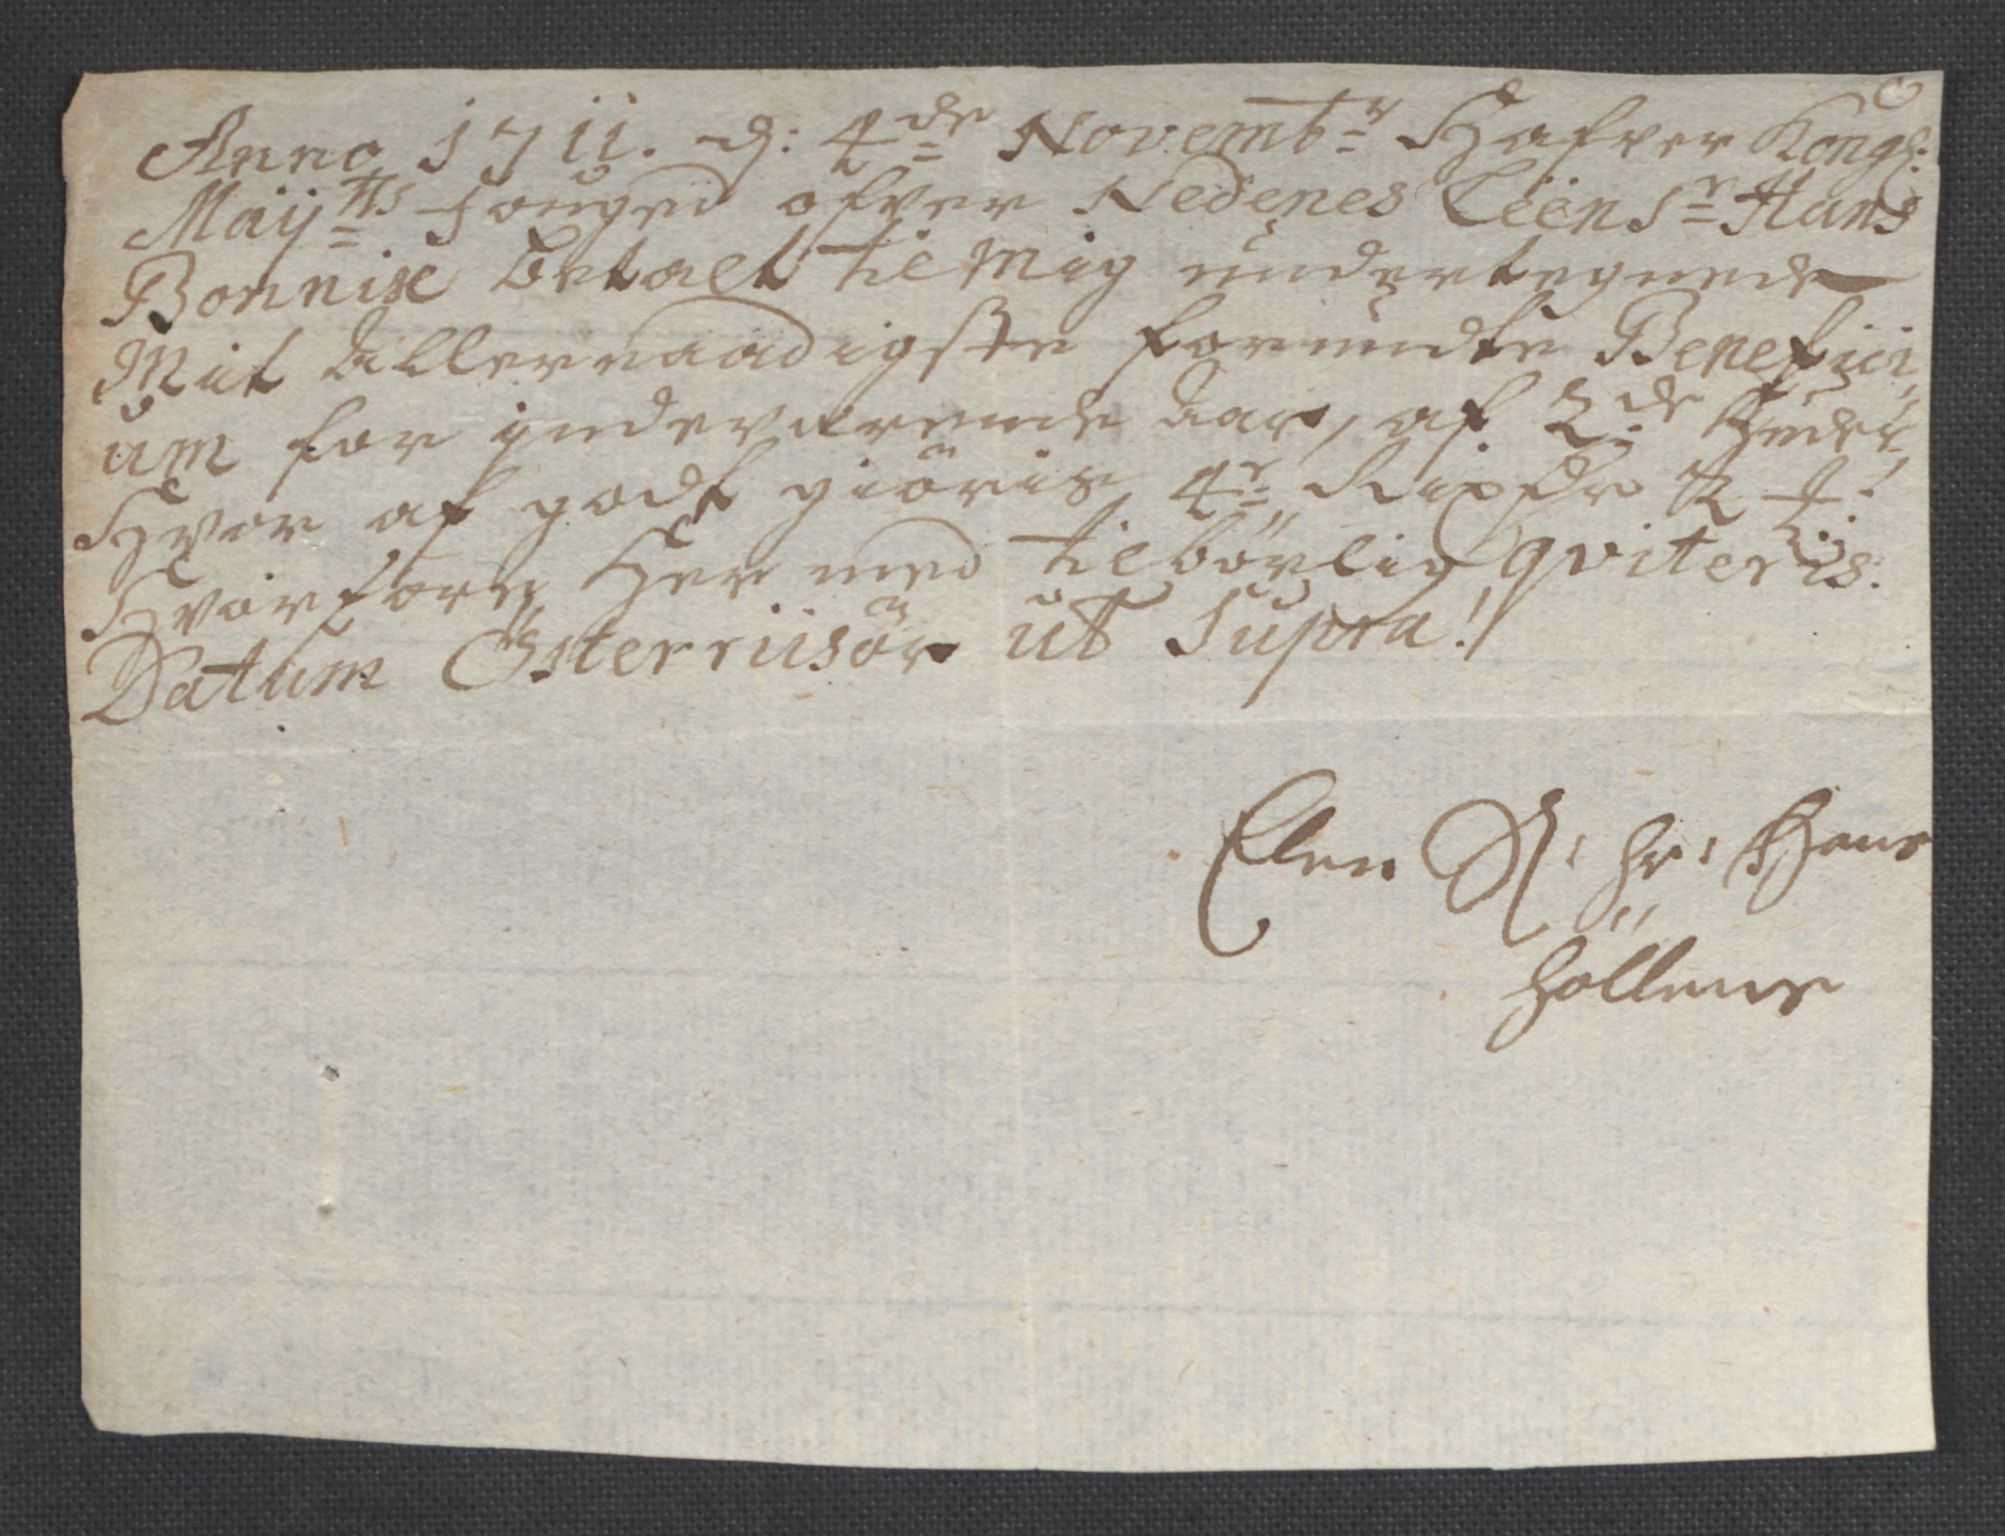 Anno 1711. d: 4de Novembr Hafver Kongl:
Maÿtts fouged ofver Nedenes Leen Sr Hans
Bonnix betalt til Mig undertegnede
Mit Allernaadigste forundte Beneficii
um for inderværende Aar, af 2de Huder,
Hvor af godt giöris 4re Rixdr
Hvorfore Her med tilbörlig qviteris.
Datum Österriisör ut Supra!
Elen Sl: hr: Hans
höllens